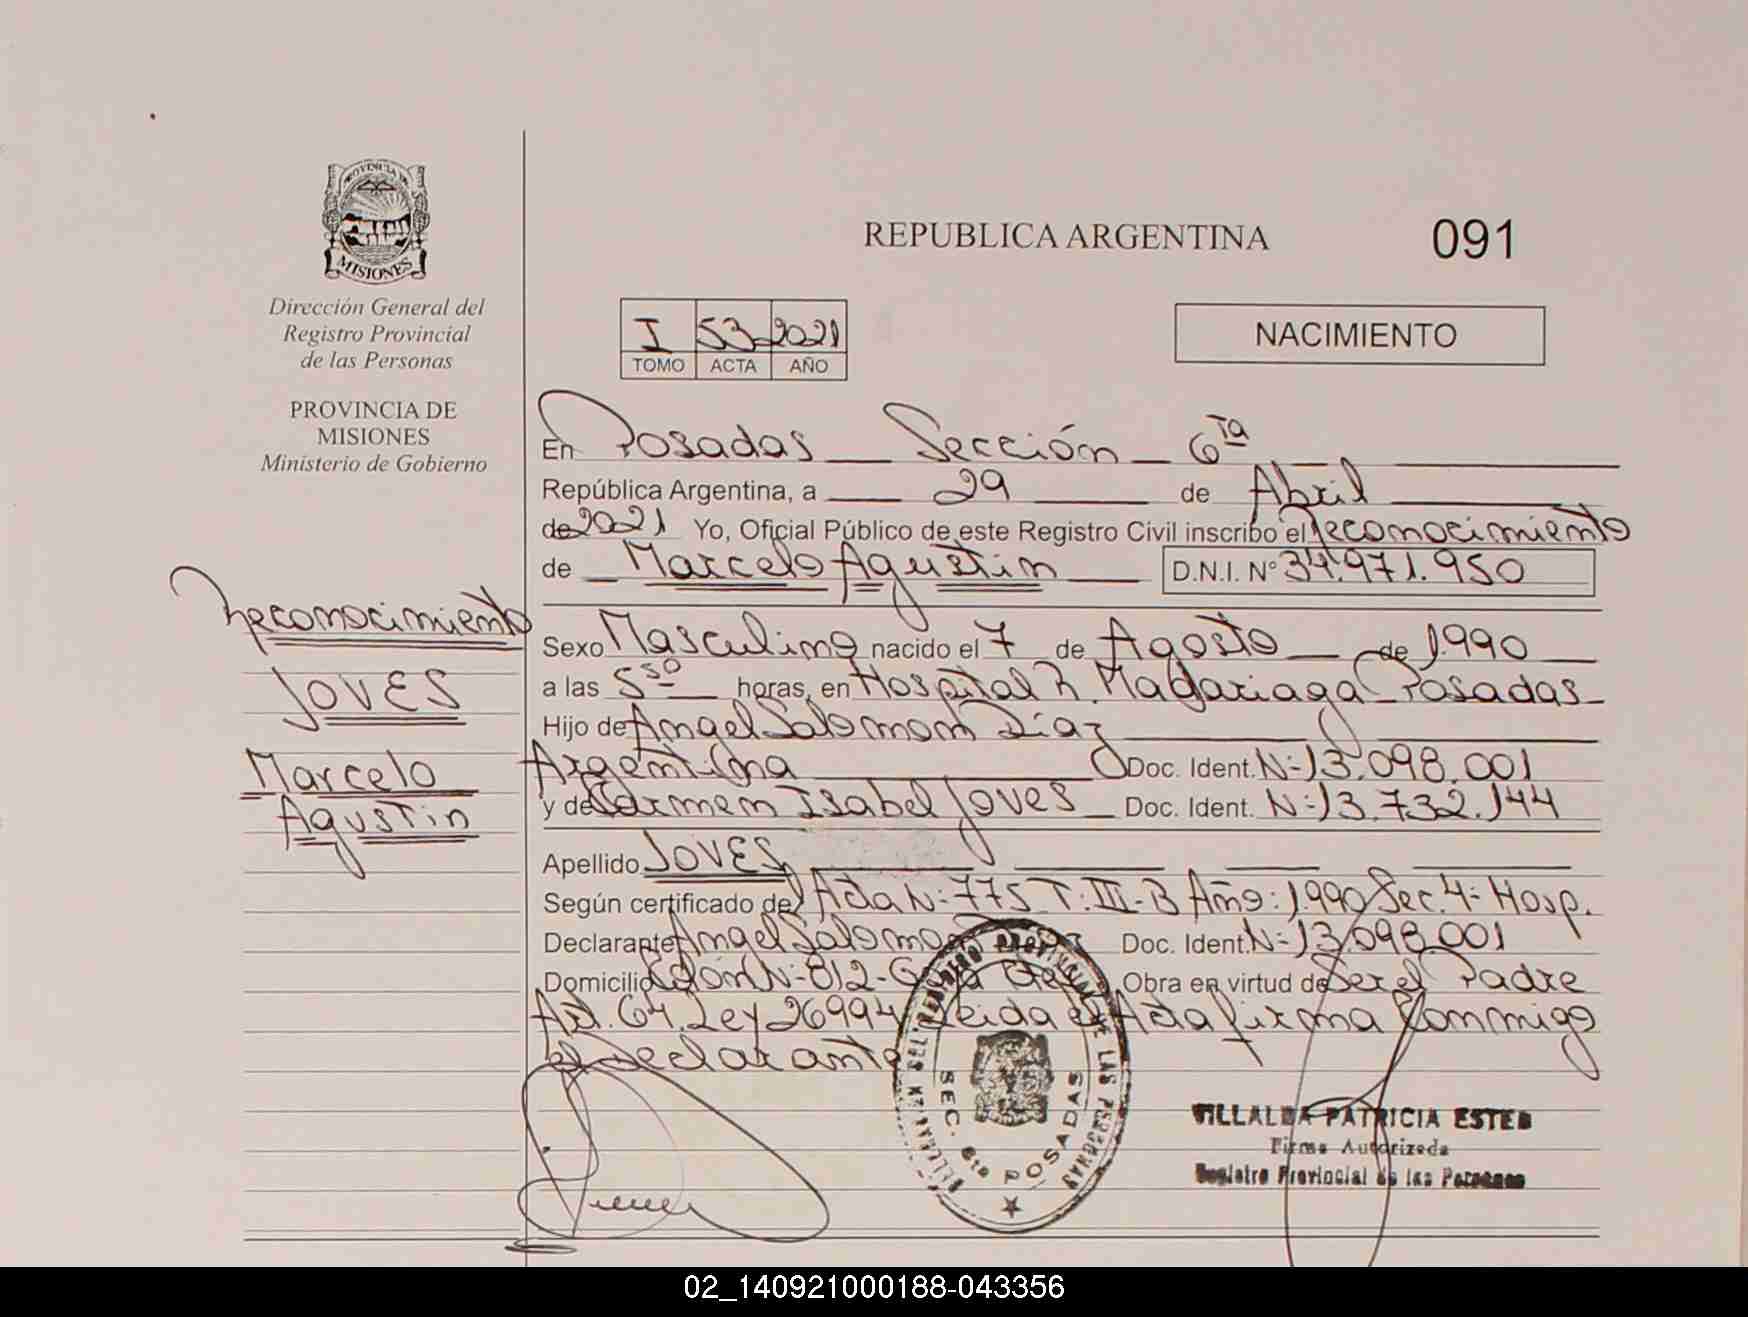 PROVINCIA DE
MISIONES
Dirección General del
Registro Provincial
de las Personas
PROVINCIA DE
MISIONES
Ministerio de Gobierno
Reconocimiento
JOVES
Marcelo
Agustin
REPUBLICA ARGENTINA
091
I 53 2021
TOMO ACTA AÑO
NACIMIENTO
En Posadas Sección 6ta
República Argentina, a 29 de Abril
de 2021 Yo, Oficial Público de este Registro Civil inscribo el Reconocimiento
de Marcelo Agustin D.N.I. N° 34.971.950
Sexo Masculino nacido el 7 de Agosto de 1.990
a las 5:50 horas, en Hospital R. Madariaga Posadas
Hijo de Angel Salomon Díaz
Argentina Doc. Ident. Nº 13.098.001
y de Carmen Isabel Joves Doc. Ident. Nº 13.732.144
Apellido JOVES
Según certificado de Acta Nº 775 T: III-B Año: 1990 Sec. 4º Hosp.
Declarante Angel Salomon Diaz Doc. Ident. Nº 13.098.001
Domicilio Colón Nº 812- Obra en virtud de Ser el Padre
Art. 64. Ley 26994 Leida el Acta firma Conmigo
el declarante
SEC. 6ta POSADAS
VILLALBA PATRICIA ESTER
Firma Autorizada
Registro Provincial de las Personas
02_140921000188-043356